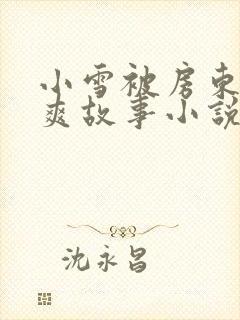 小雪被房东
爽故事小说
沈永昌